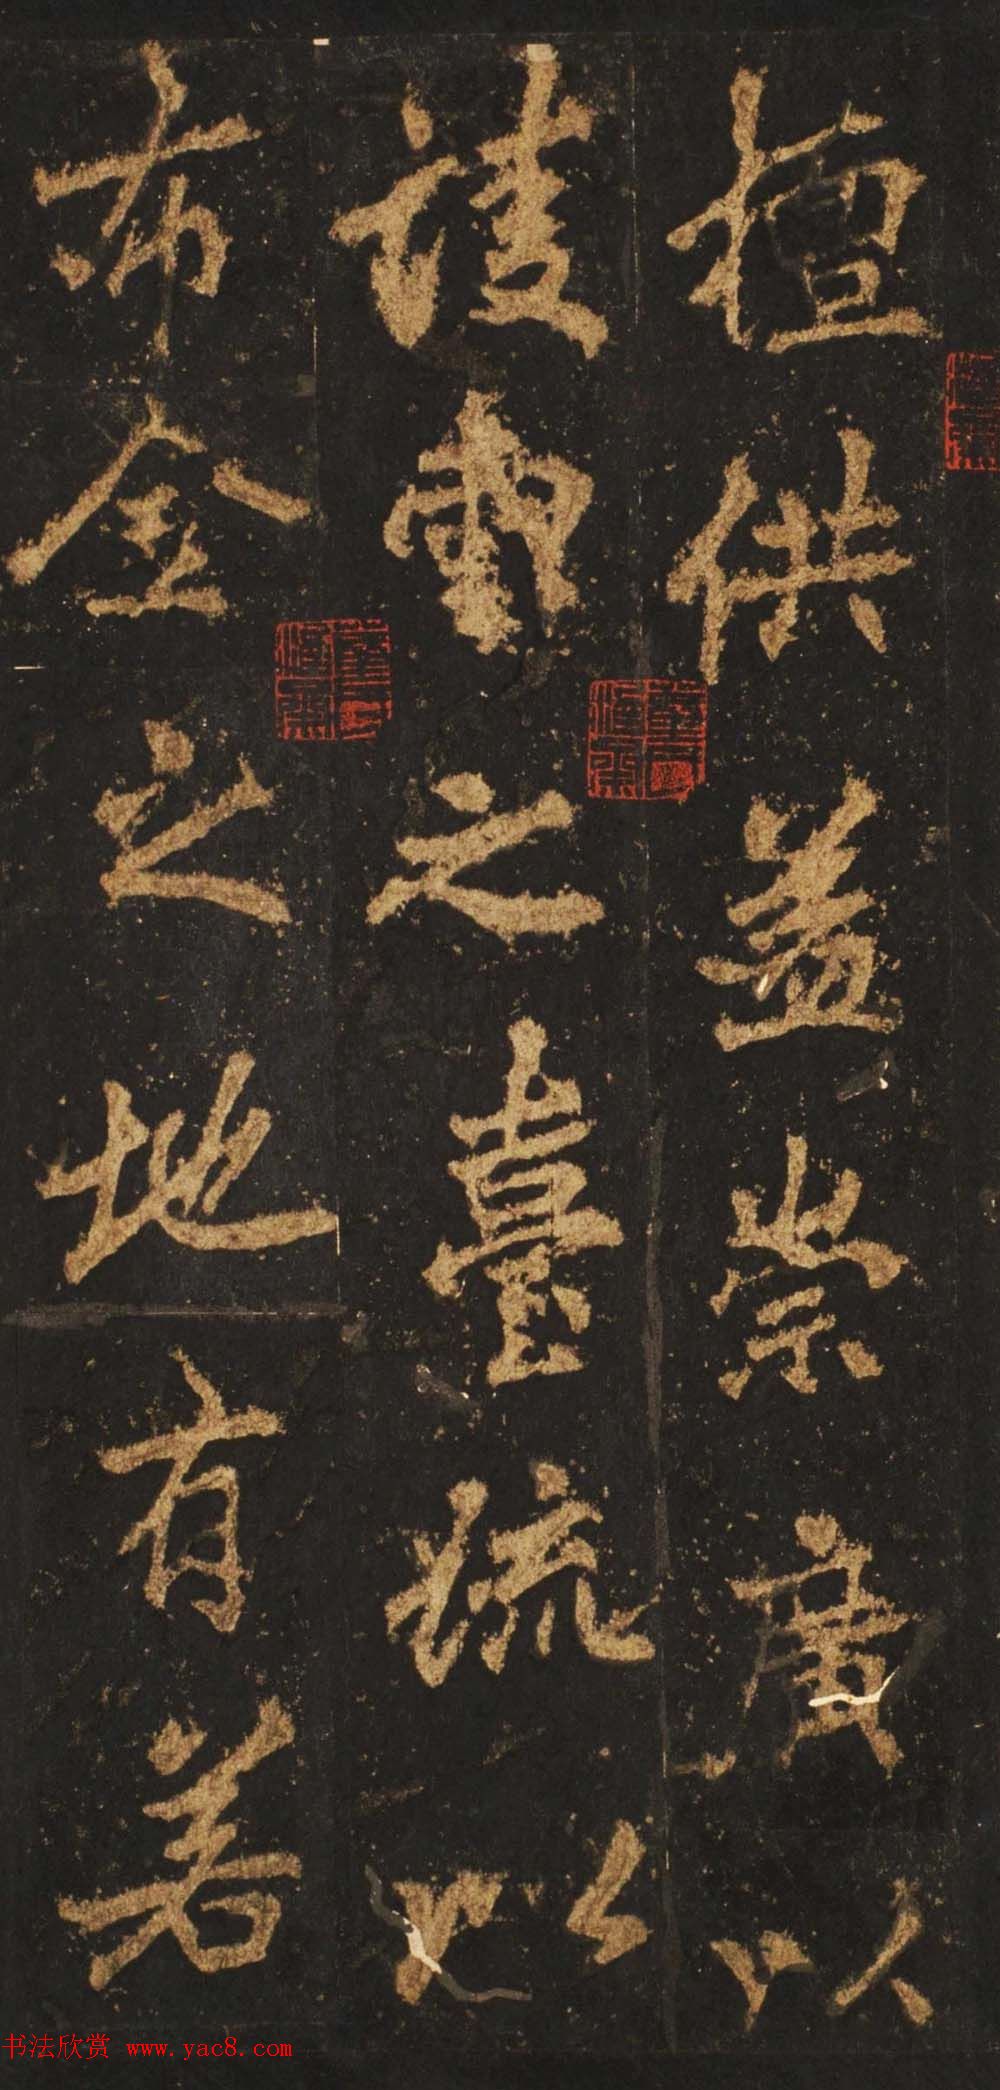 檀供益崇廣以
凌雲之臺疏以
布金之地有若
书法欣赏 www.yac8.com